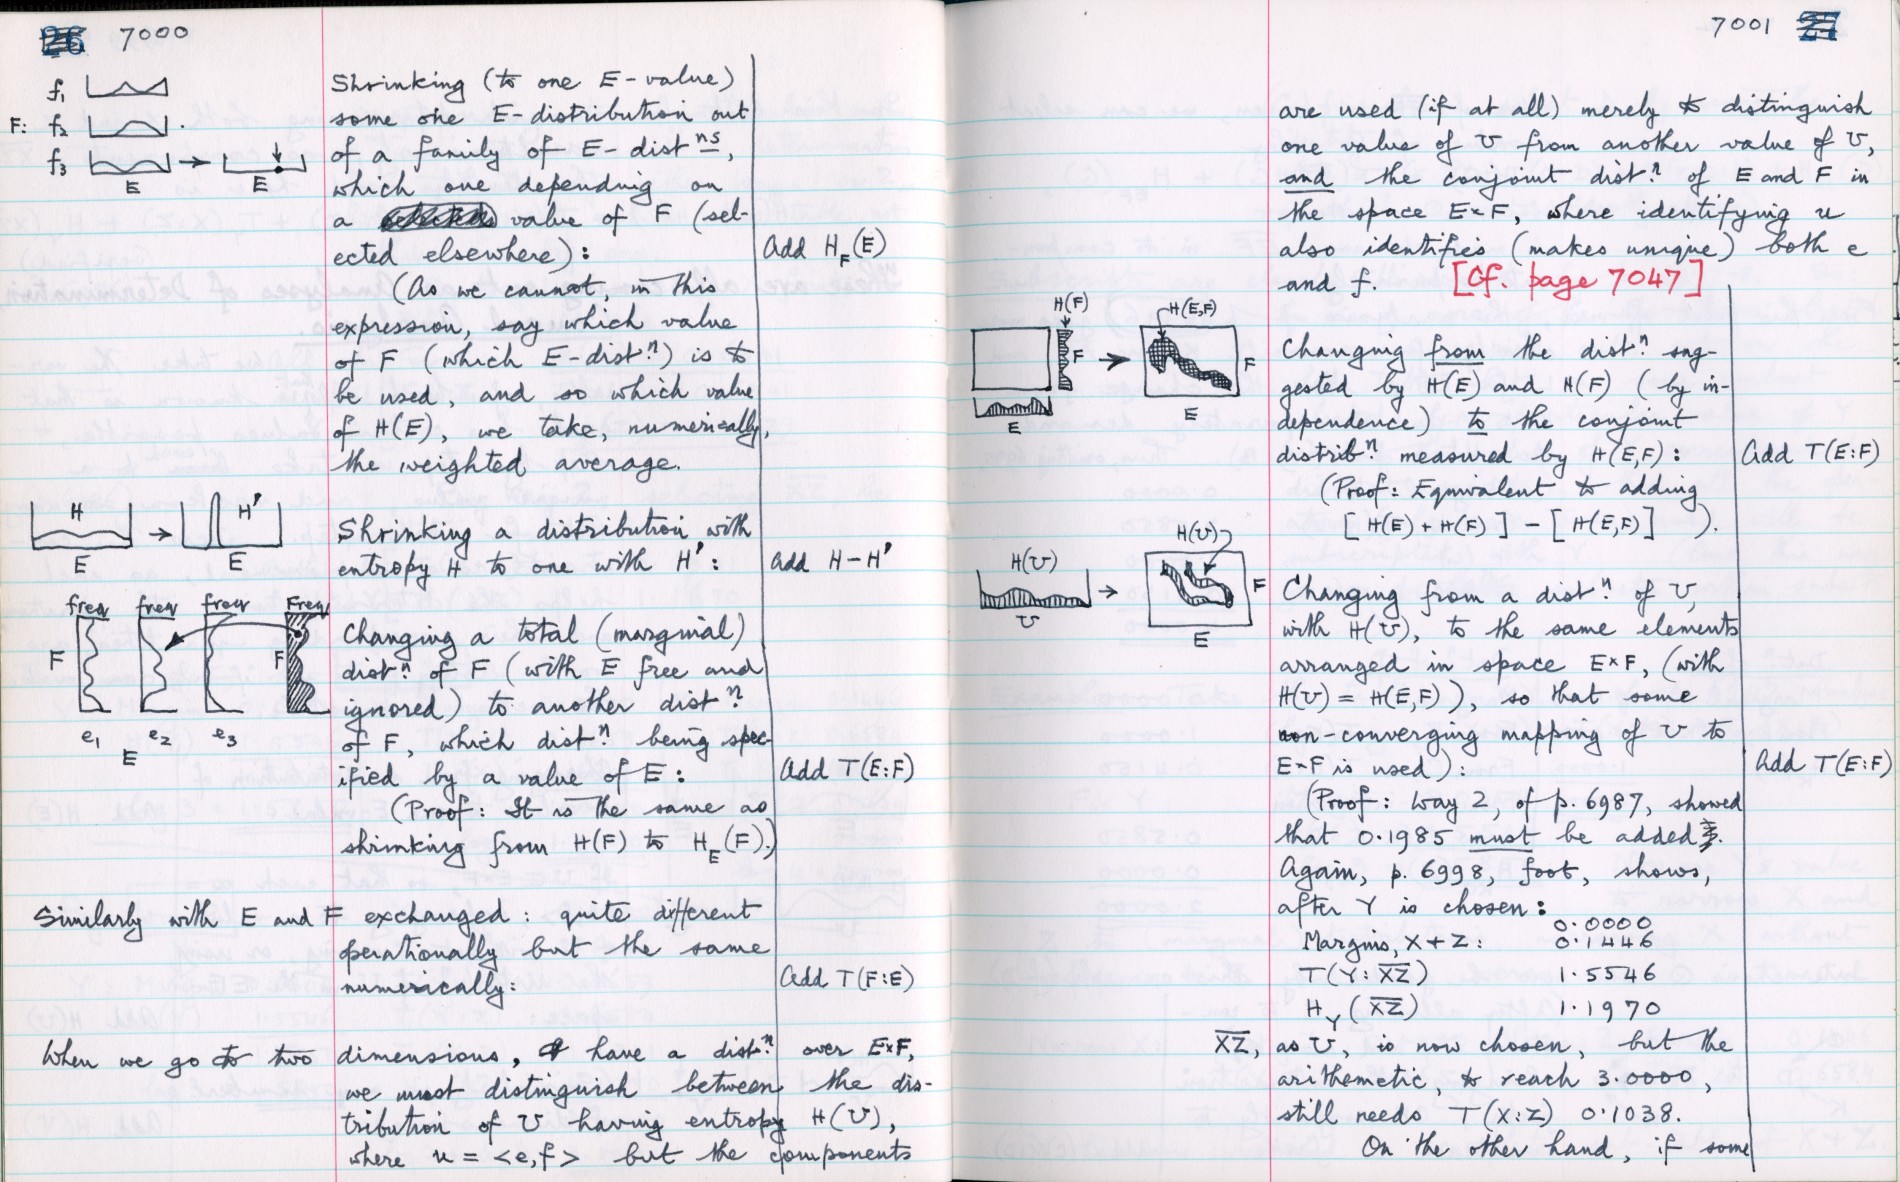 26 7000
f₁
F: f₂
f₃
E E
Shrinking (to one E-value)
some one E-distribution out
of a family of E-distⁿˢ,
which one depending on
a value of F (sel-
ected elsewhere):
Add H_F(E)
(As we cannot, in this
expression, say which value
of F (which E-dist.ⁿ) is to
be used, and so which value
of H(E), we take, numerically,
the weighted average.
H H'
E E
Shrinking a distribution with
entropy H to one with H':
add H-H'
freq freq freq Freq
F F
e₁ e₂ e₃
E
Changing a total (marginal)
dist.ⁿ of F (with E free and
ignored) to another dist.ⁿ
of F, which dist.ⁿ being spec-
ified by a value of E:
Add T(E:F)
(Proof: It is the same as
shrinking from H(F) to H_E(F).)
Similarly with E and F exchanged: quite different
perationally but the same
numerically:
Add T(F:E)
When we go to two dimensions, & have a dist.ⁿ over E×F,
we must distinguish between the dis-
tribution of U having entropy H(U),
where u = <e,f> but the components
7001 27
are used (if at all) merely to distinguish
one value of U from another value of U,
and the conjoint dist.ⁿ of E and F in
the space E×F, where identifying u
also identifies (makes unique) both e
and f. [Cf. page 7047]
H(F) H(E,F)
F F
E E
Changing from the dist.ⁿ sug-
gested by H(E) and H(F) (by in-
dependence) to the conjoint
distrib.ⁿ measured by H(E,F):
Add T(E:F)
(Proof: Equivalent to adding
[H(E)+H(F)] - [H(E,F)] ).
H(U) H(U)
F
U E
Changing from a dist.ⁿ of U,
with H(U), to the same elements
arranged in space E×F, (with
H(U) = H(E,F)), so that some
non-converging mapping of U to
E×F is used):
Add T(E:F)
(Proof: Way 2, of p. 6987, showed
that 0.1985 must be added.
Again, p. 6998, foot, shows,
after Y is chosen:
0.0000
Margins, X+Z: 0.1446
T(Y:X̅Z̅) 1.5546
H_Y(X̅Z̅) 1.1970
X̅Z̅, as U, is now chosen, but the
arithemetic, to reach 3.0000,
still needs T(X:Z) 0.1038.
On the other hand, if some